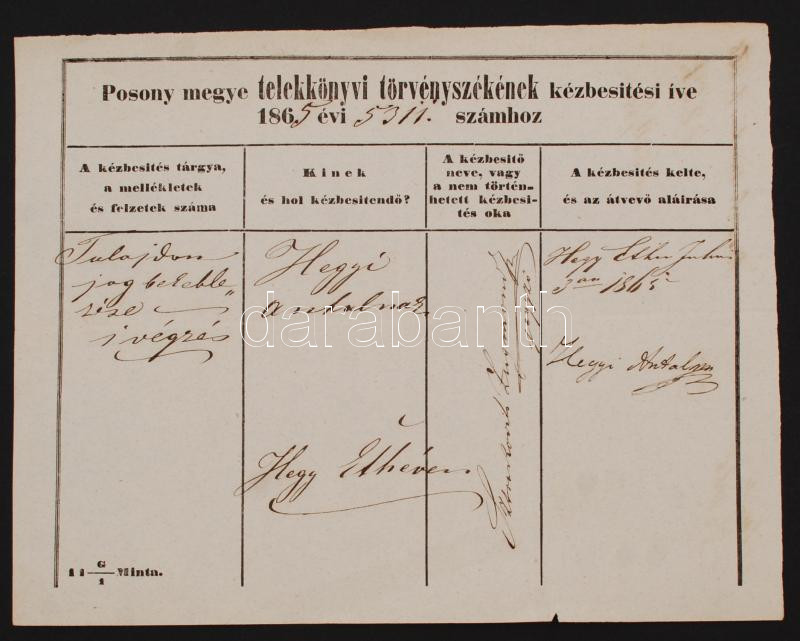 Posony megye telekkönyvi törvényszékének kézbesitési íve
1865 évi 5311. számhoz
A kézbesités tárgya,
a mellékletek
és felzetek száma
Kinek
és hol kézbesitendő?
A kézbesitő
neve, vagy
a nem történ-
hetett kézbesi-
tés oka
A kézbesités kelte,
és az átvevő aláirása
Tulajdon
jog bekeble„
zése
1 végzés
Hegyi
Antalnak
Hegy Ethéven
Hegy Ethe Juhni
3án 1865
Hegyi Antal
11 G/1 Minta.
darabanth